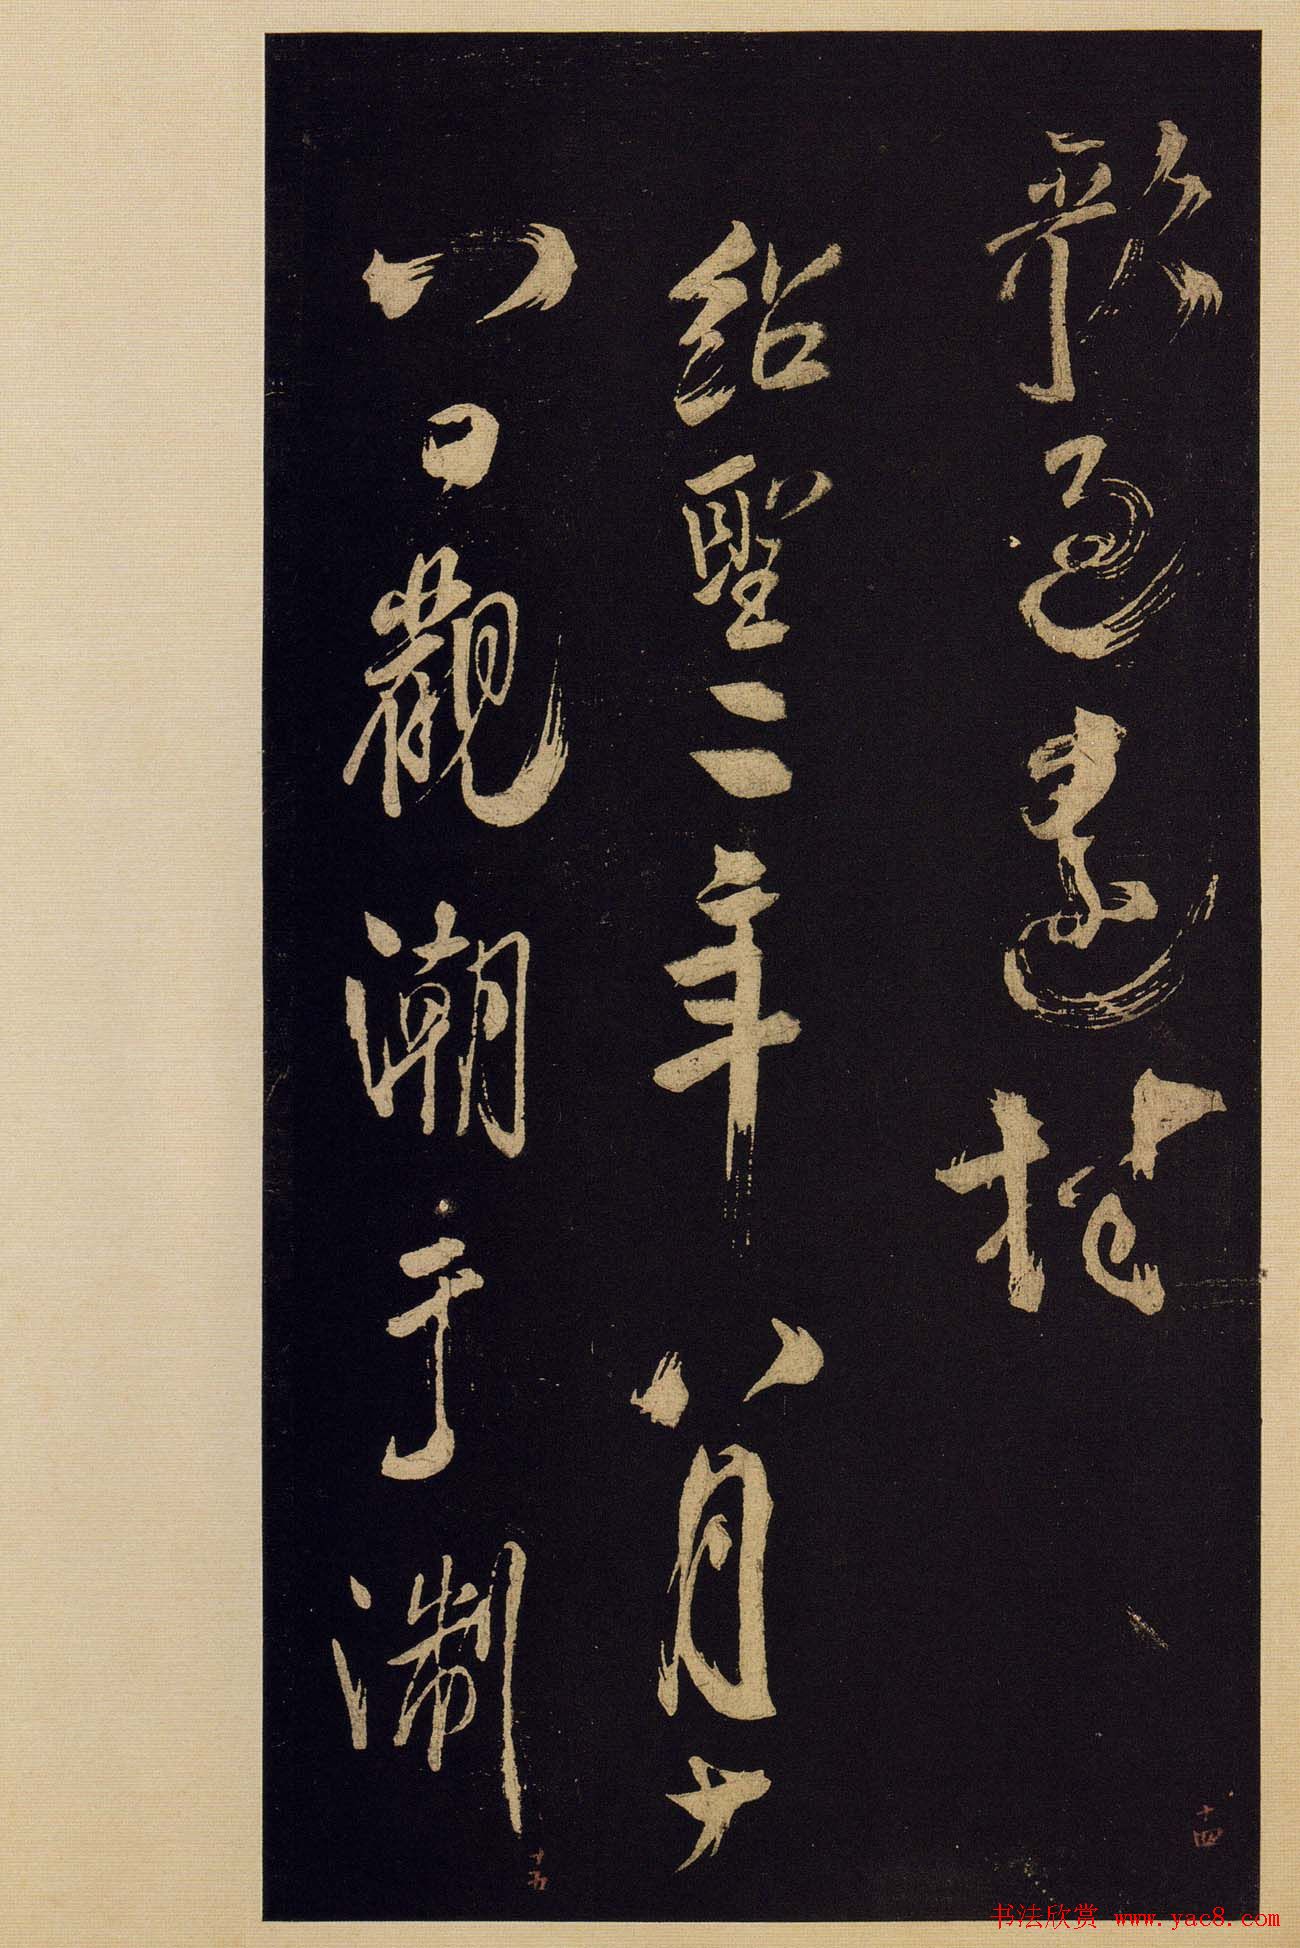 歌過遠村
紹聖二年八月十
八日觀潮于淛
十四
十五
书法欣赏 www.yac8.com